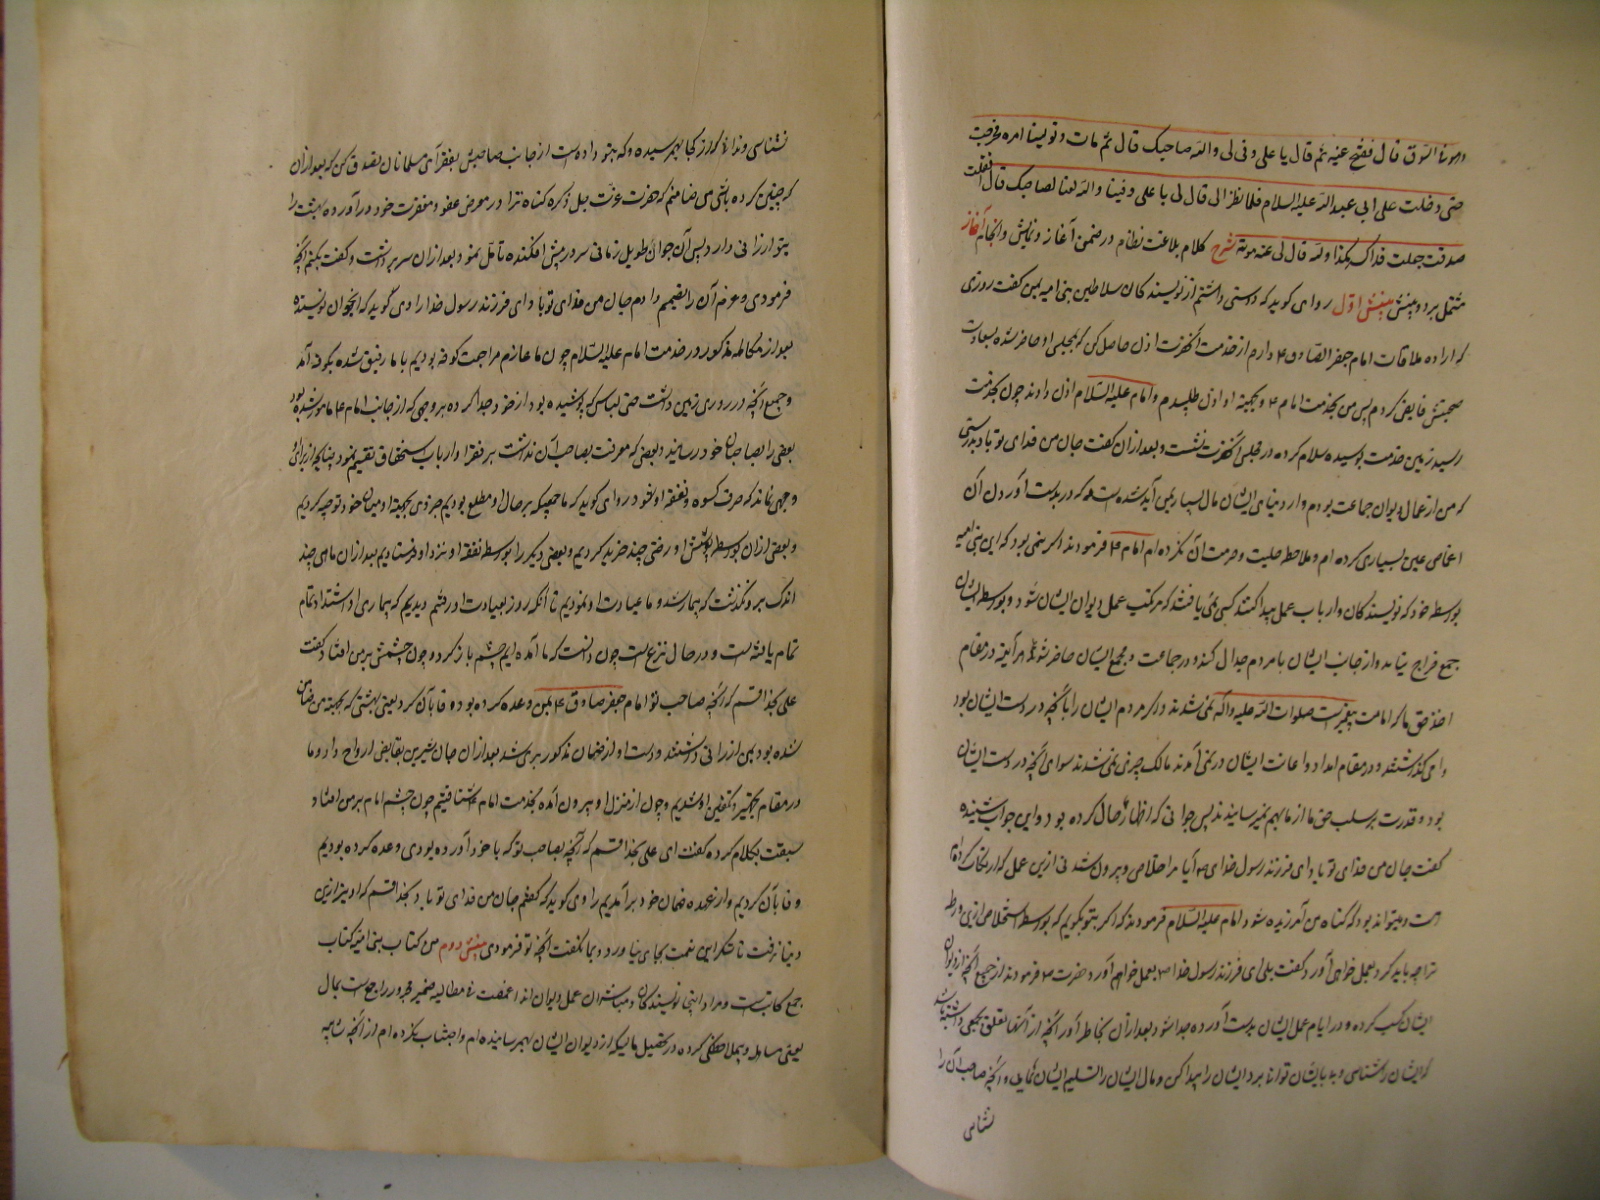 وهو فی السوق قال ففتح عینیه ثم قال یا علی وفی لی والله صاحبک قال ثم مات و تولینا امره فخرجت
حتی دخلت علی ابی عبد الله علیه السلام فلما نظر الی قال لی یا علی وفینا والله لصاحبک قال فقلت
صدقت جعلت فداک هکذا والله قال لی عند موته شرح کلام بلاغت نظام در ضمن آغاز و نمایش و انجام آغاز
مشتمل بر دو بینش بینش اول راوی گوید که دوستی داشتم از نویسندگان سلاطین بنی امیه بمن گفت روزی
که اراده ملاقات امام جعفر الصادق ع دارم از خدمت آنحضرت اذن حاصل کن که بمجلس او حاضر شده بسعادت
صحبتش فایض گردم پس من بخدمت امام ع و بجهته او اذن طلبیدم و امام علیه السلام اذن دادند چون بخدمت
رسید زمین خدمت بوسیده سلام کرده در مجلس آنحضرت نشست و بعد از آن گفت جان من فدای تو باد بدرستی
که من از عمال دیوان جماعت بودم و از دنیای ایشان مال بسیار بمن آید شده است و که در بدست آوردن آن
اغماض عین بسیاری کرده ام و ملاحظه حلیت و حرمت آن نکرده ام امام ع فرمودند و اگر نمی بود که این بنی امیه
بواسطه خود که نویسندگان و ارباب عمل پیدا کنند کسی نمی یافتند که مرتکب عمل دیوان ایشان شود و بواسطه ایشان
جمع خراج نماید و از جانب ایشان با مردم جدال کند و در جماعت و مجمع ایشان حاضر شود هر آینه در مقام
اخذ حق ما که امامت پیغمبرست صلوات الله علیه و آله نمی شدند و اگر مردم ایشان را با آنچه در دست ایشان بود
وا می گذاشتند و در مقام امداد و اعانت ایشان در نمی آمدند مالک چیزی نمی شدند سوای آنچه در دست ایشان
بود و قدرت بر سلب حق ما از ما بهم نمیرسانیدند پس جوانی که اظهار حال کرده بود و این جواب شنیده
گفت جان من فدای تو باد ای فرزند رسول خدای ص آیا مرا خلاصی و بیرون شدنی ازین عمل که ارتکاب کرده ام
هست و میتواند بود که گناه من آمرزیده شود امام علیه السلام فرمودند که اگر بتو بگویم که بواسطه استخلاص ازین ورطه
ترا چه باید کرد بعمل خواهی آورد گفت بلی ای فرزند رسول خدا ص بعمل خواهم آورد حضرت ع فرمودند از جمیع آنچه از دیوان
ایشان کسب کرده و در ایام عمل ایشان بدست آورده جدا شو و بعد از آن بخاطر آور آنچه از آنها تعلق بجمعی داشته باشد
که ایشان را شناسی و به ایشان توانا برد ایشان را پیدا کن و مال ایشان را تسلیم ایشان نمای و آنچه صاحب آن را
نشناسی
نشناسی و ندانی که از کجا بهم رسیده و که بتو داده است از جانب صاحبش بفقرای مسلمانان تصدق کن که بعد از آن
که چنین کرده باشی من ضامنم که حضرت عزت جل ذکره گناه ترا در معرض عفو و مغفرت خود در آورده بهشت را
بتو ارزانی دارد پس آن جوان طویل زمانی سر در پیش افکنده تأمل نمود و بعد از آن سر برداشت و گفت بکنم آنچه
فرمودی و عزم آن را تصمیم دادم جان من فدای تو باد ای فرزند رسول خدا راوی گوید که آنجوان نویسنده
بعد از مکالمه مذکور در خدمت امام علیه السلام چون ما عازم مراجعت کوفه بودیم با ما رفیق شده بکوفه آمد
و جمیع آنچه در روی زمین داشت حتی لباس که پوشیده بود از خود جدا کرده بروجهی که از جانب امام ع مامور شده بود
بعضی را بصاحبان خود رسانید و بعضی که معرفت بصاحب آن نداشت بر فقرا و ارباب استحقاق تقسیم نمود چنانچه از برای او
وجهی نماند که صرف کسوه و نفقه او شود راوی گوید که ما جمعیکه بر حال او مطلع بودیم جزوی بجهته او میان خود توجیه کردیم
و بعضی از آن بواسطه پوشش او رختی چند خرید کردیم و بعضی دیگر را بواسطه نفقه او نزد او فرستادیم بعد از آن ماهی چند
اندک برو نگذشت که بیمار شد و ما عیادت او نمودیم تا آنکه روز بعیادت او رفتیم دیدیم که بیماری او اشتداد تمام
تمام یافته است و در حال نزع است چون دانست که ما آمده ایم چشم باز کرد و چون چشمش بر من افتاد گفت
علی بخدا قسم که آنچه صاحب تو امام جعفر صادق ع بمن وعده کرده بود وفا بآن کرد یعنی بهشتی که بجهته من ضامن
شده بود بمن ارزانی داشتند و ذمت او از ضمان مذکور بری شد بعد از آن جان شیرین بقابض ارواح داد و ما
در مقام تجهیز و تکفین او شدیم و چون از منزل او بیرون آمده بخدمت امام ع شتافتیم چون چشم امام بر من افتاد
سبقت بکلام کرده گفت ای علی بخدا قسم که آنچه بصاحب تو که با خود آورده بودی وعده کرده بودیم
وفا بآن کردیم و از عهده ضمان خود برآمدیم راوی گوید که گفتم جان من فدای تو باد بخدا قسم که او نیز ازین
دنیا نرفت تا شکر این نعمت بجای نیاورد و بما نگفت آنچه تو فرمودی بینش دوم من کتاب بنی امیه کتاب
جمع کاتبست و مراد اینجا نویسندگان و مباشران عمل دیوان اند اغمضت فی مطالبه ضمیر مجرور راجع است بمال
یعنی مساهله و بی ملاحظگی کرده در تحصیل مالیکه از دیوان ایشان بهم رسانیده ام و اجتناب نکرده ام از آنچه شایبه